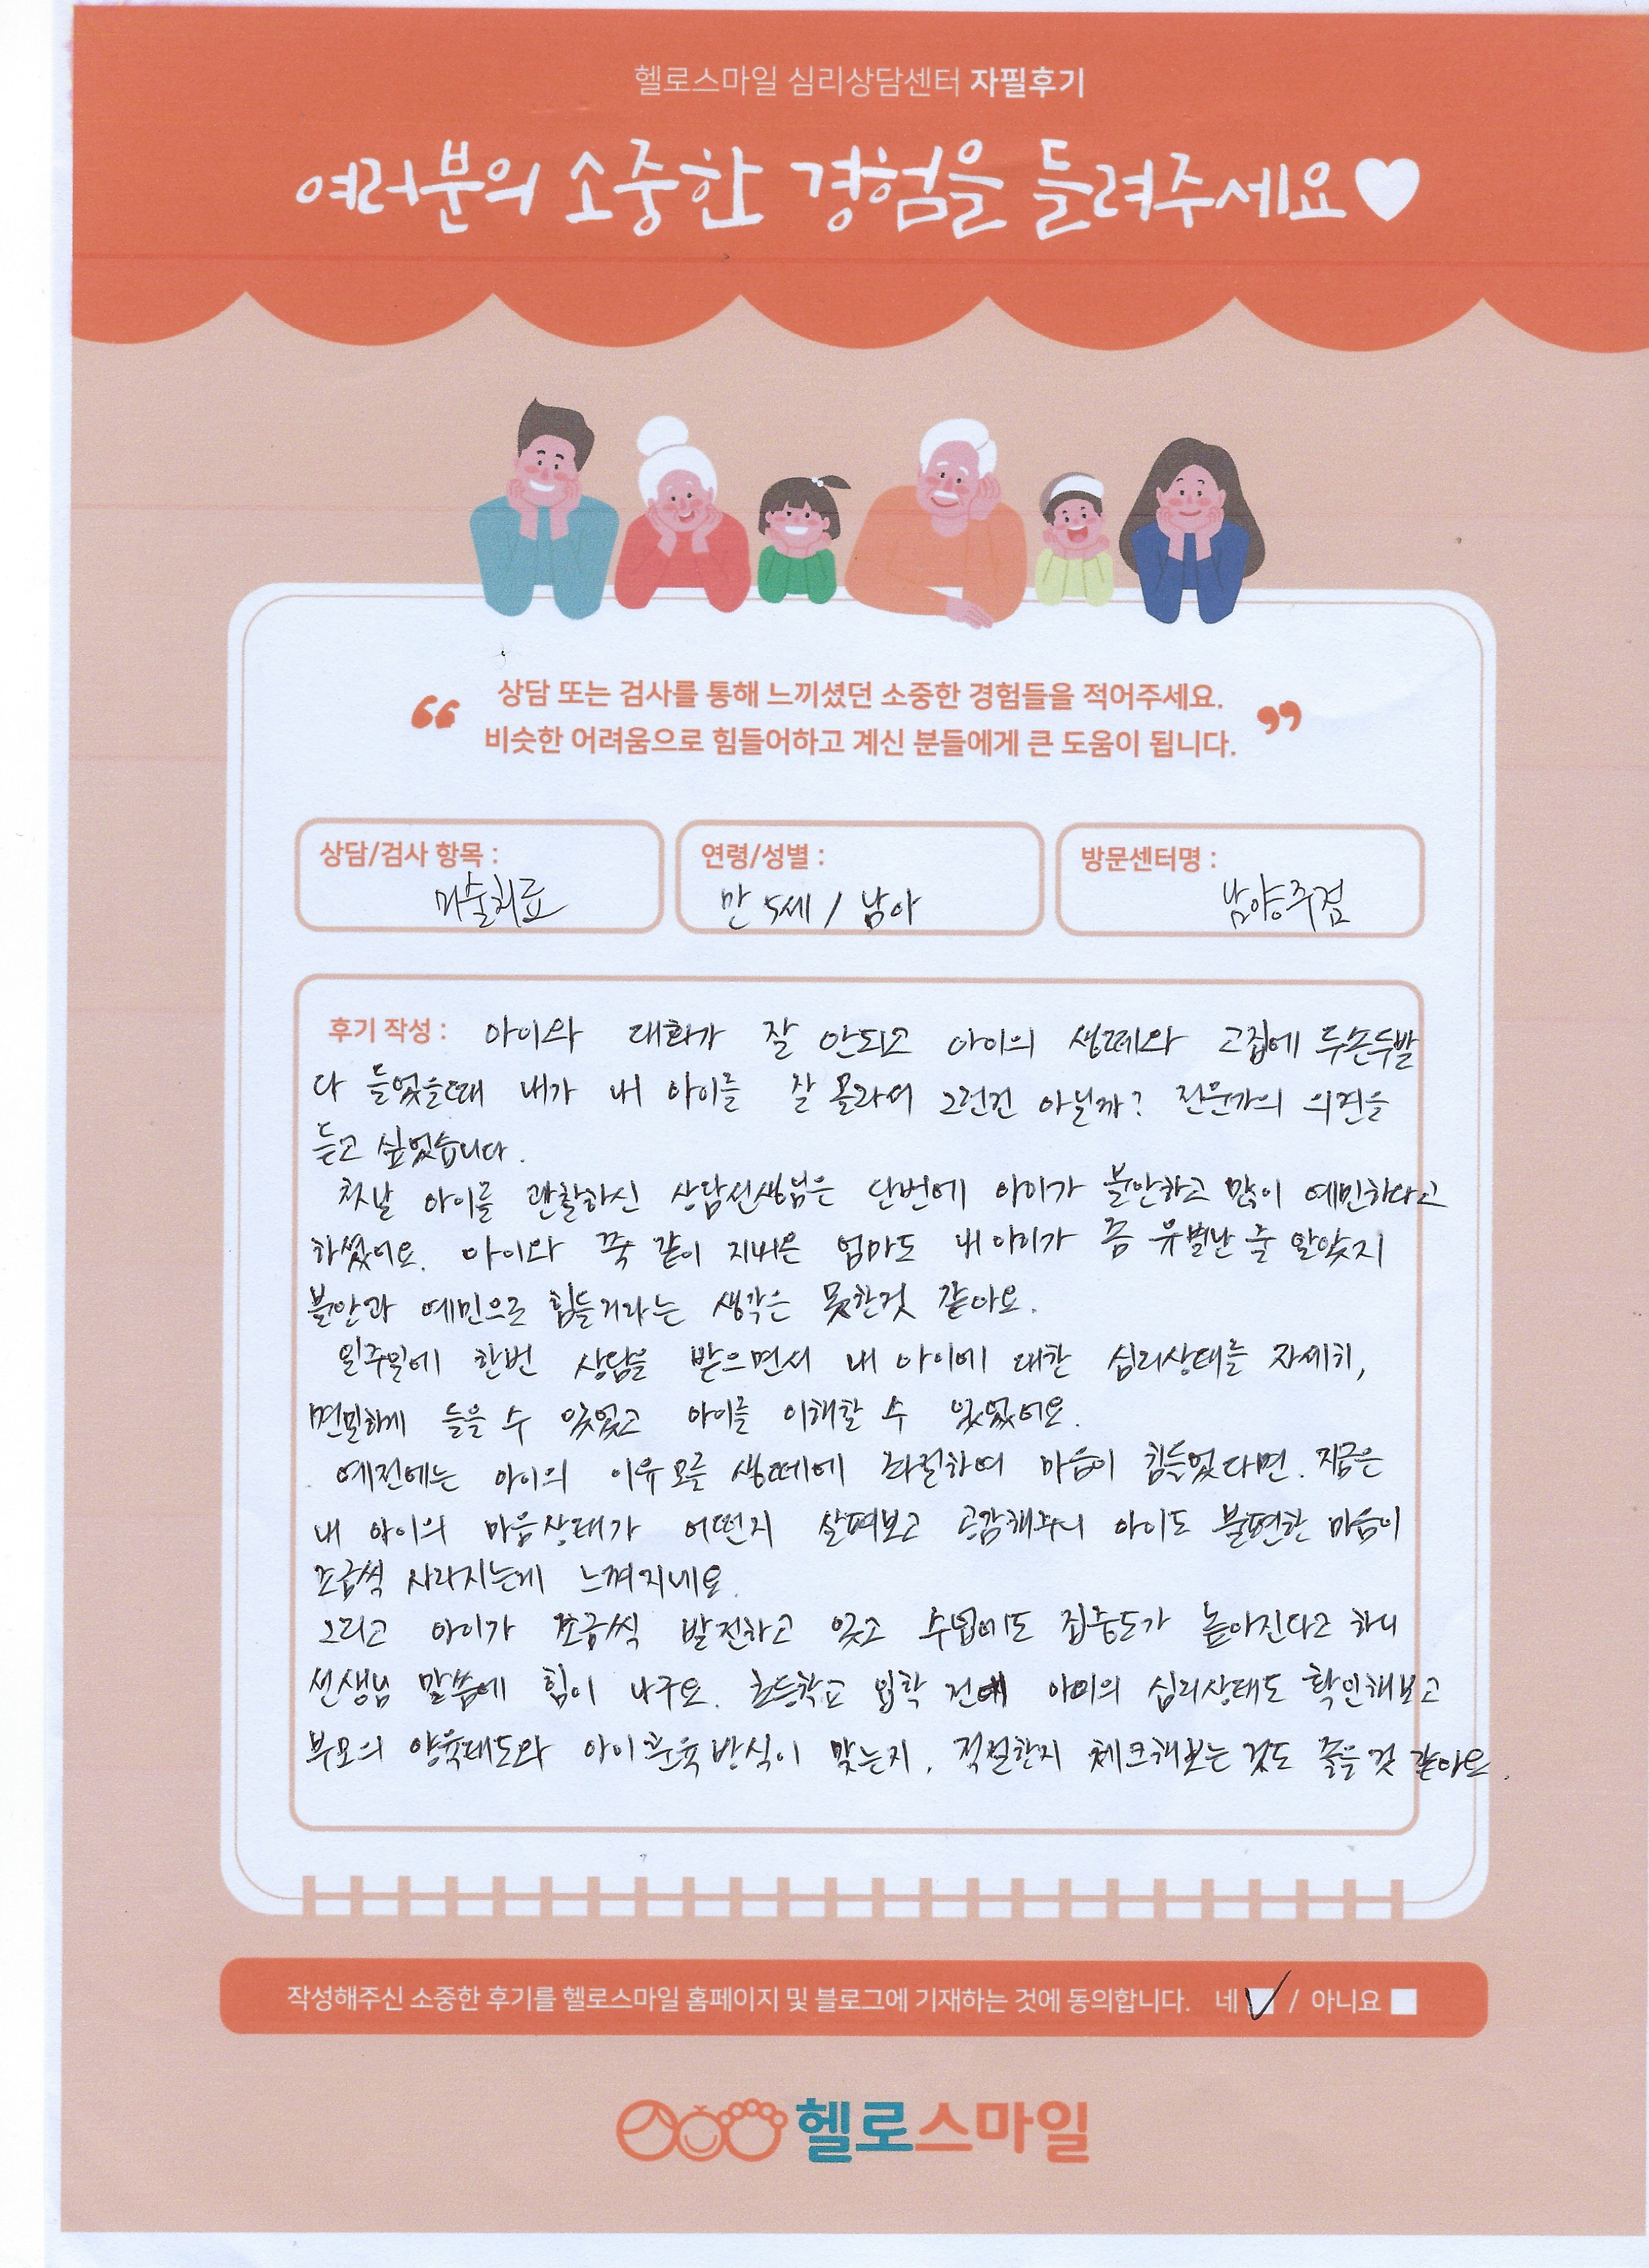 헬로스마일 심리상담센터 자필후기
여러분의 소중한 경험을 들려주세요
상담 또는 검사를 통해 느끼셨던 소중한 경험들을 적어주세요.
비슷한 어려움으로 힘들어하고 계신 분들에게 큰 도움이 됩니다.
상담/검사 항목 : 미술치료
연령/성별 : 만 5세 / 남아
방문센터명 : 남양주점
후기 작성 : 아이와 대화가 잘 안되고 아이의 생떼와 고집에 두손두발
다 들었을때 내가 내 아이를 잘 몰라서 그런건 아닐까? 전문가의 의견을
듣고 싶었습니다.
첫날 아이를 관찰하신 상담선생님은 단번에 아이가 불안하고 많이 예민하다고
하셨어요. 아이와 쭉 같이 지내온 엄마도 내 아이가 좀 유별난 줄 알았지
불안과 예민으로 힘들거라는 생각은 못한것 같아요.
일주일에 한번 상담을 받으면서 내 아이에 대한 심리상태를 자세히,
면밀하게 들을 수 있었고 아이를 이해할 수 있었어요.
예전에는 아이의 이유모를 생떼에 좌절하여 마음이 힘들었다면. 지금은
내 아이의 마음상태가 어떤지 살펴보고 공감해주니 아이도 불편한 마음이
조금씩 사라지는게 느껴지네요
그리고 아이가 조금씩 발전하고 있고 수업에도 집중도가 높아진다고 하니
선생님 말씀에 힘이 나구요. 초등학교 입학 전에 아이의 심리상태도 확인해보고
부모의 양육태도와 아이훈육방식이 맞는지, 적절한지 체크해보는 것도 좋을것 같아요.
작성해주신 소중한 후기를 헬로스마일 홈페이지 및 블로그에 기재하는 것에 동의합니다. 네 / 아니요
헬로스마일